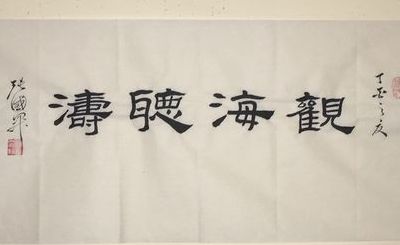 丁亥之夏
觀海聽濤
張國興